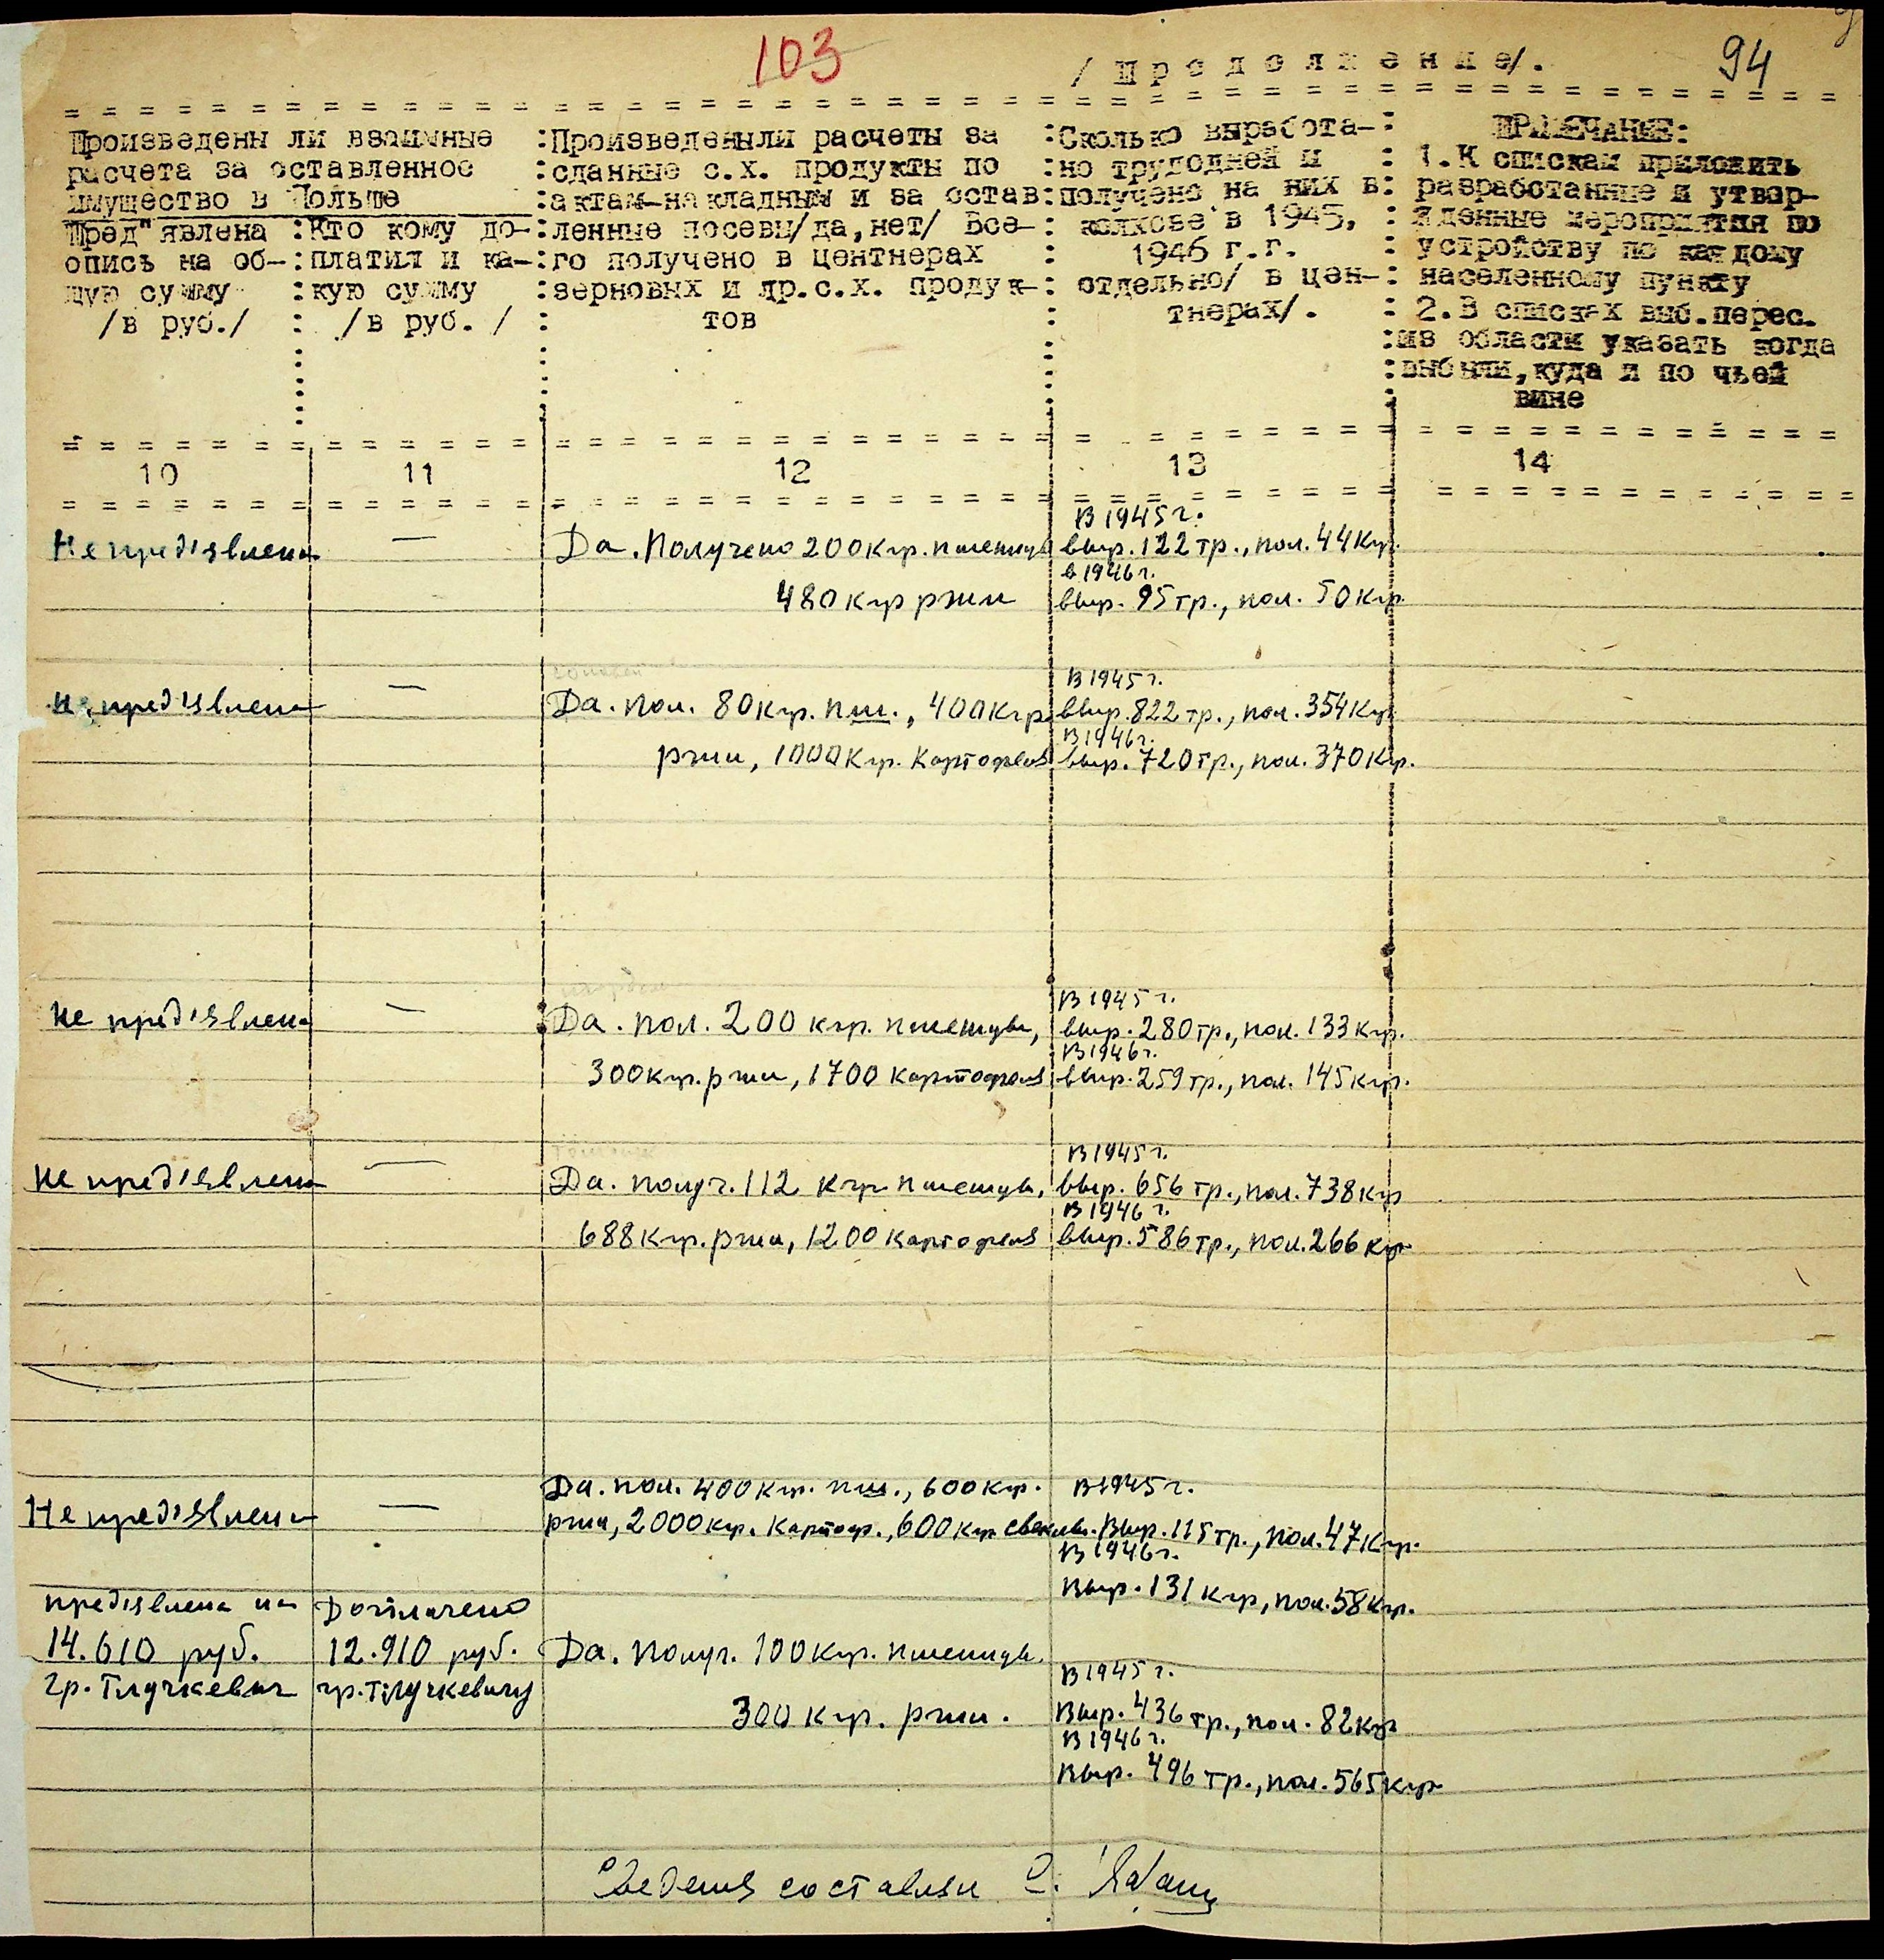 103
/Продолжение/.
94
Произведены ли взаимные
расчета за оставленное
имущество в Польше
Пред"явлена
опись на об-
щую сумму
/в руб./
Кто кому до-
платил и ка-
кую сумму
/в руб./
Произведены ли расчеты за
сданные с.х. продукты по
актам-накладным и за остав
ленные посевы/да,нет/ Все-
го получено в центнерах
зерновых и др.с.х. продук-
тов
Сколько выработа-
но трудодней и
получено на них в
колхозе в 1945,
1946 г.г.
отдельно/ в цен-
тнерах/.
ПРИМЕЧАНИЕ:
1.К спискам приложить
разработанные и утвер-
жденные мероприятия по
устройству по каждому
населенному пункту
2.В списках выб.перес.
из области указать когда
выбыли,куда и по чьей
вине
10 11 12 13 14
Не предъявлена — Да. Получено 200 кгр. пшеницы
480 кгр ржи
В 1945 г.
выр. 122 тр., пол. 44 кгр.
в 1946 г.
выр. 95 тр., пол. 50 кгр.
Не предъявлена — Да. пол. 80 кгр. пш., 400 кгр.
ржи, 1000 кгр. картофеля
В 1945 г.
выр. 822 тр., пол. 354 кгр
В 1946 г.
выр. 720 тр., пол. 370 кгр.
Не предъявлена — Да. пол. 200 кгр. пшеницы,
300 кгр. ржи, 1700 картофеля
В 1945 г.
выр. 280 тр., пол. 133 кгр.
В 1946 г.
выр. 259 тр., пол. 145 кгр.
Не предъявлена — Да. получ. 112 кгр пшеницы,
688 кгр. ржи, 1200 картофеля
В 1945 г.
выр. 656 тр., пол. 738 кгр
В 1946 г.
выр. 586 тр., пол. 266 кгр
Не предъявлена — Да. пол. 400 кгр. пш., 600 кгр.
ржи, 2000 кгр. картоф., 600 кгр свеклы.
В 1945 г.
Выр. 115 тр., пол. 47 кгр.
В 1946 г.
Выр. 131 кгр, пол. 58 кгр.
предъявлена на
14.610 руб.
гр. Тлучкевич
Доплачено
12.910 руб.
гр. Тлучкевичу
Да. Получ. 100 кгр. пшеницы.
300 кгр. ржи.
В 1945 г.
Выр. 436 тр., пол. 82 кгр
В 1946 г.
Выр. 496 тр., пол. 565 кгр
Сведения составлял